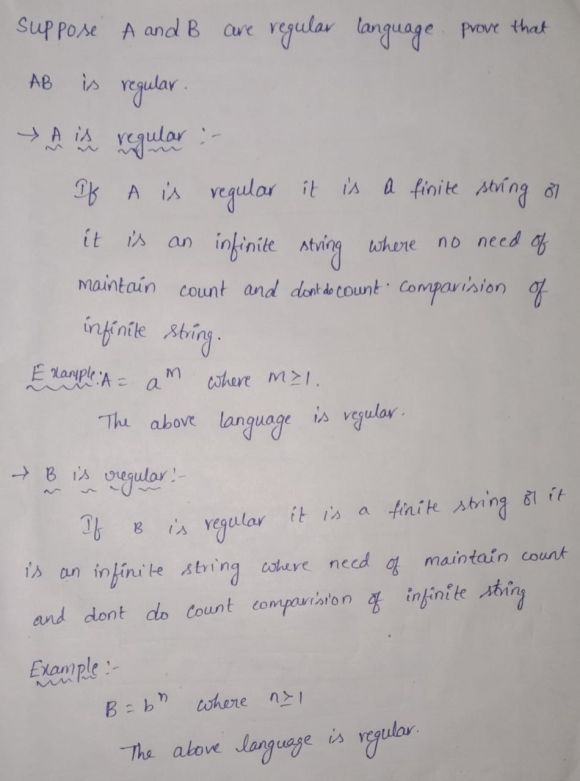 Suppose A and B are regular language. prove that
AB is regular.
→ A is regular :-
If A is regular it is a finite string or
it is an infinite string where no need of
maintain count and dont do count comparision of
infinite string.
Example: A = a^m where m≥1.
The above language is regular.
→ B is regular :-
If B is regular it is a finite string or it
is an infinite string where need of maintain count
and dont do count comparision of infinite string
Example :-
B = b^n where n≥1
The above language is regular.